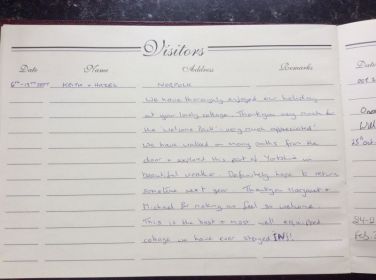 Visitors
Date Name Address Remarks
6th - 13th SEPT KEITH + HAZEL NORFOLK
We have thoroughly enjoyed our holiday
at your lovely cottage. Thankyou very much for
the welcome pack - very much appreciated!
We have walked on many paths from the
door + explored this part of Yorkshire in
beautiful weather. Definitely hope to return
sometime next year. Thankyou Margaret +
Michael for making us feel so welcome.
This is the best + most well equipped
cottage we have ever stayed IN!!
Da
OCT
25th Oct
Feb